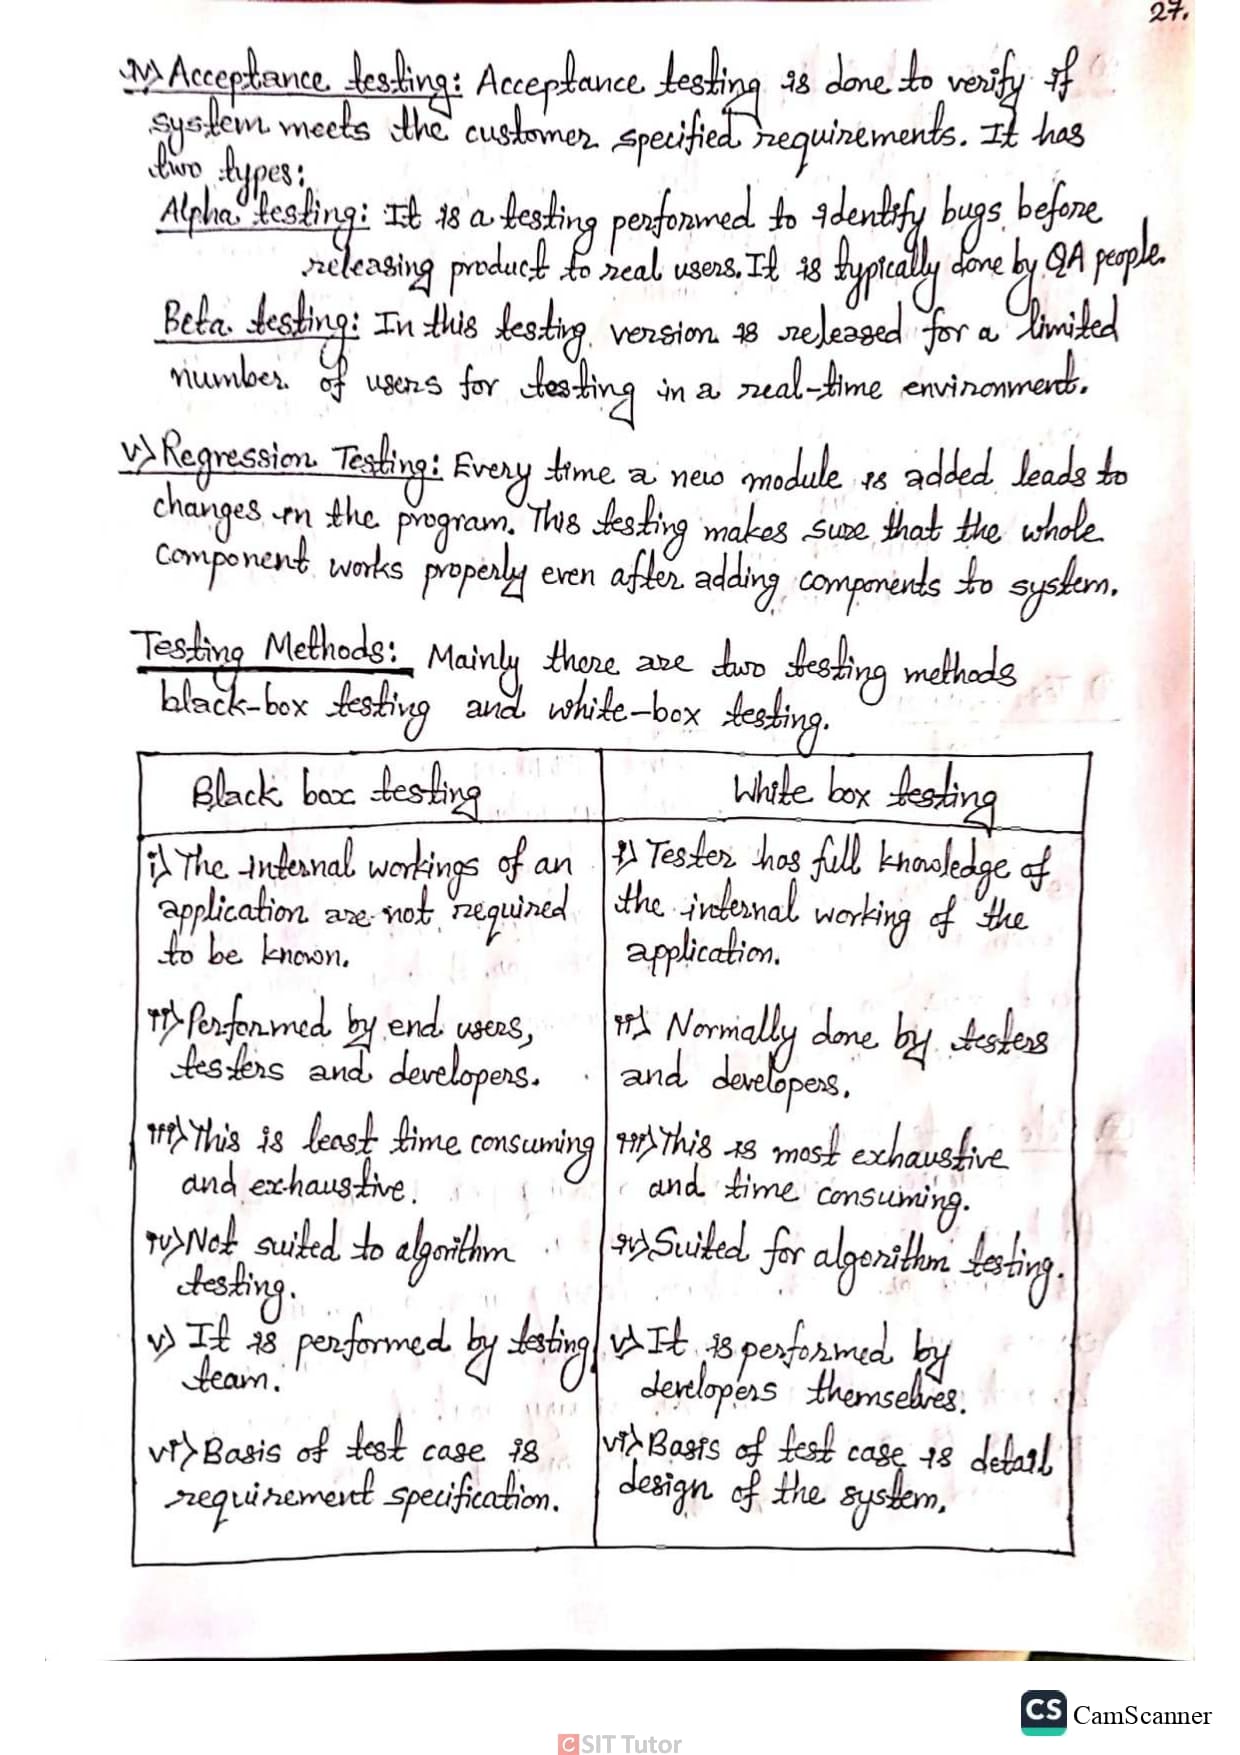 27.
iv) Acceptance testing: Acceptance testing is done to verify if
system meets the customer specified requirements. It has
two types:
Alpha testing: It is a testing performed to identify bugs before
releasing product to real users. It is typically done by QA people.
Beta testing: In this testing version is released for a limited
number of users for testing in a real-time environment.
v) Regression Testing: Every time a new module is added leads to
changes in the program. This testing makes sure that the whole
component works properly even after adding components to system.
Testing Methods: Mainly there are two testing methods
black-box testing and white-box testing.
Black box testing
i) The internal workings of an
application are not required
to be known.
ii) Performed by end users,
testers and developers.
iii) This is least time consuming
and exhaustive.
iv) Not suited to algorithm
testing.
v) It is performed by testing
team.
vi) Basis of test case is
requirement specification.
White box testing
i) Tester has full knowledge of
the internal working of the
application.
ii) Normally done by testers
and developers.
iii) This is most exhaustive
and time consuming.
iv) Suited for algorithm testing.
v) It is performed by
developers themselves.
vi) Basis of test case is detail
design of the system.
CS CamScanner
CSIT Tutor